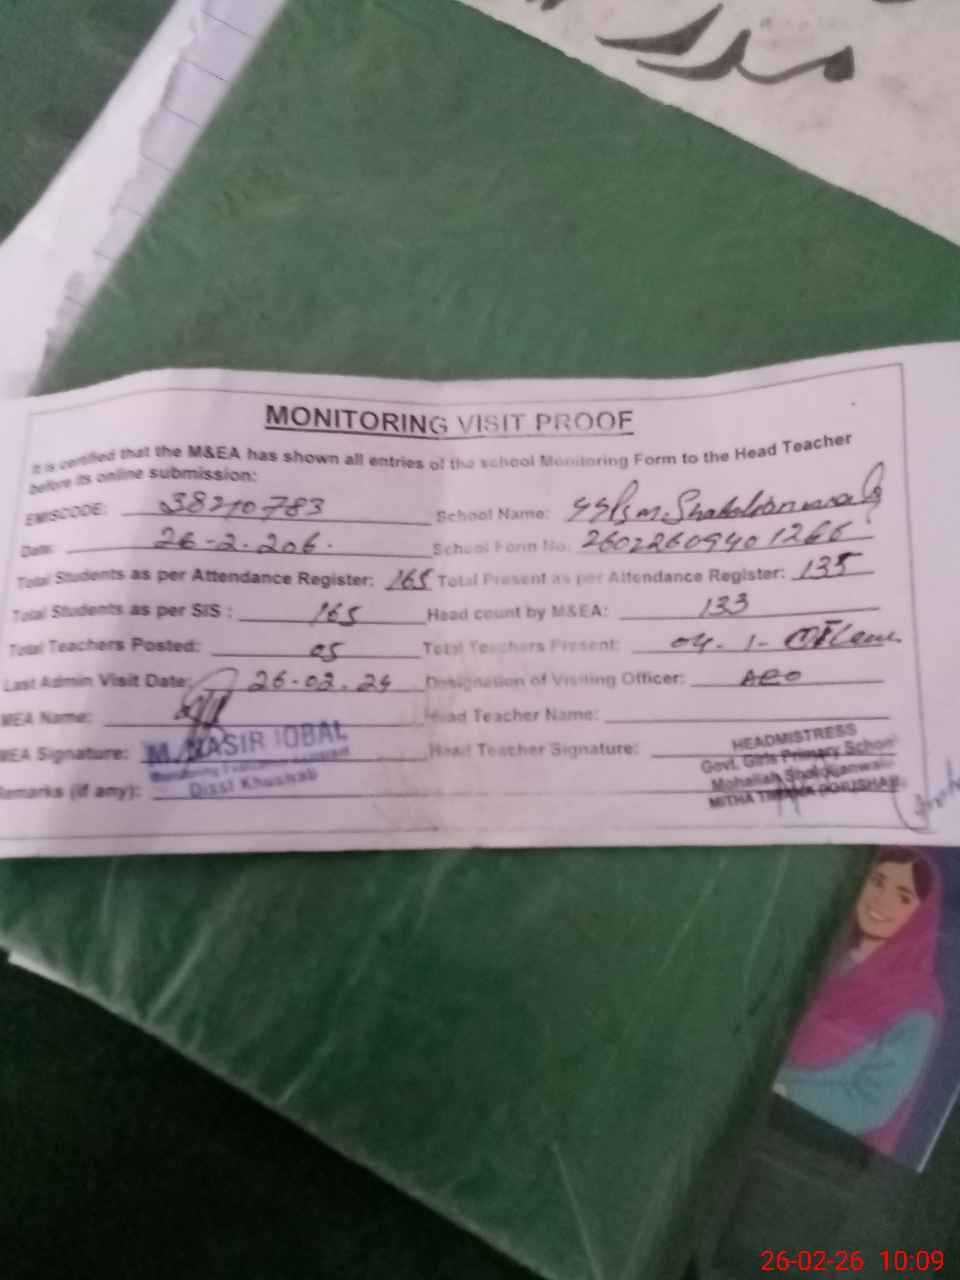 مدر
MONITORING VISIT PROOF
It is certified that the M&EA has shown all entries of the school Monitoring Form to the Head Teacher
before its online submission:
EMISCODE: 38210783 School Name:
Date: 26-2-206. School Form No: 26022609401266
Total Students as per Attendance Register: 165 Total Present as per Attendance Register: 135
Total Students as per SIS : 165 Head count by M&EA: 133
Total Teachers Posted: 05 Total Teachers Present: 04. 1-
Last Admin Visit Date: 26-02.24 Designation of Visiting Officer: AEO
MEA Name: Head Teacher Name:
MEA Signature: M. NASIR IQBAL Head Teacher Signature: HEADMISTRESS
Monitoring Evaluation Assistant Govt. Girls Primary School
Disst Khushab Mohallah
Remarks (if any): MITHA TIWANA (KHUSHAB)
26-02-26 10:09